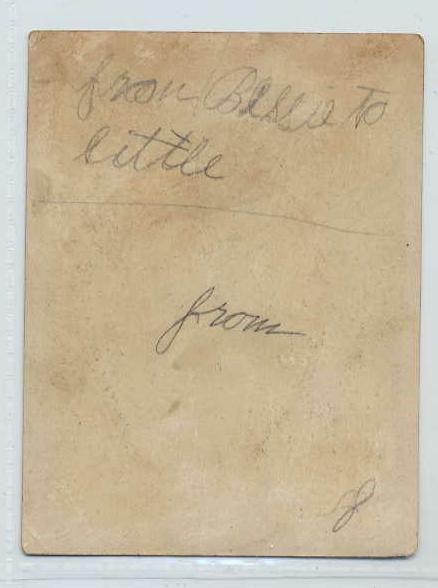 from Bessie to
little
from